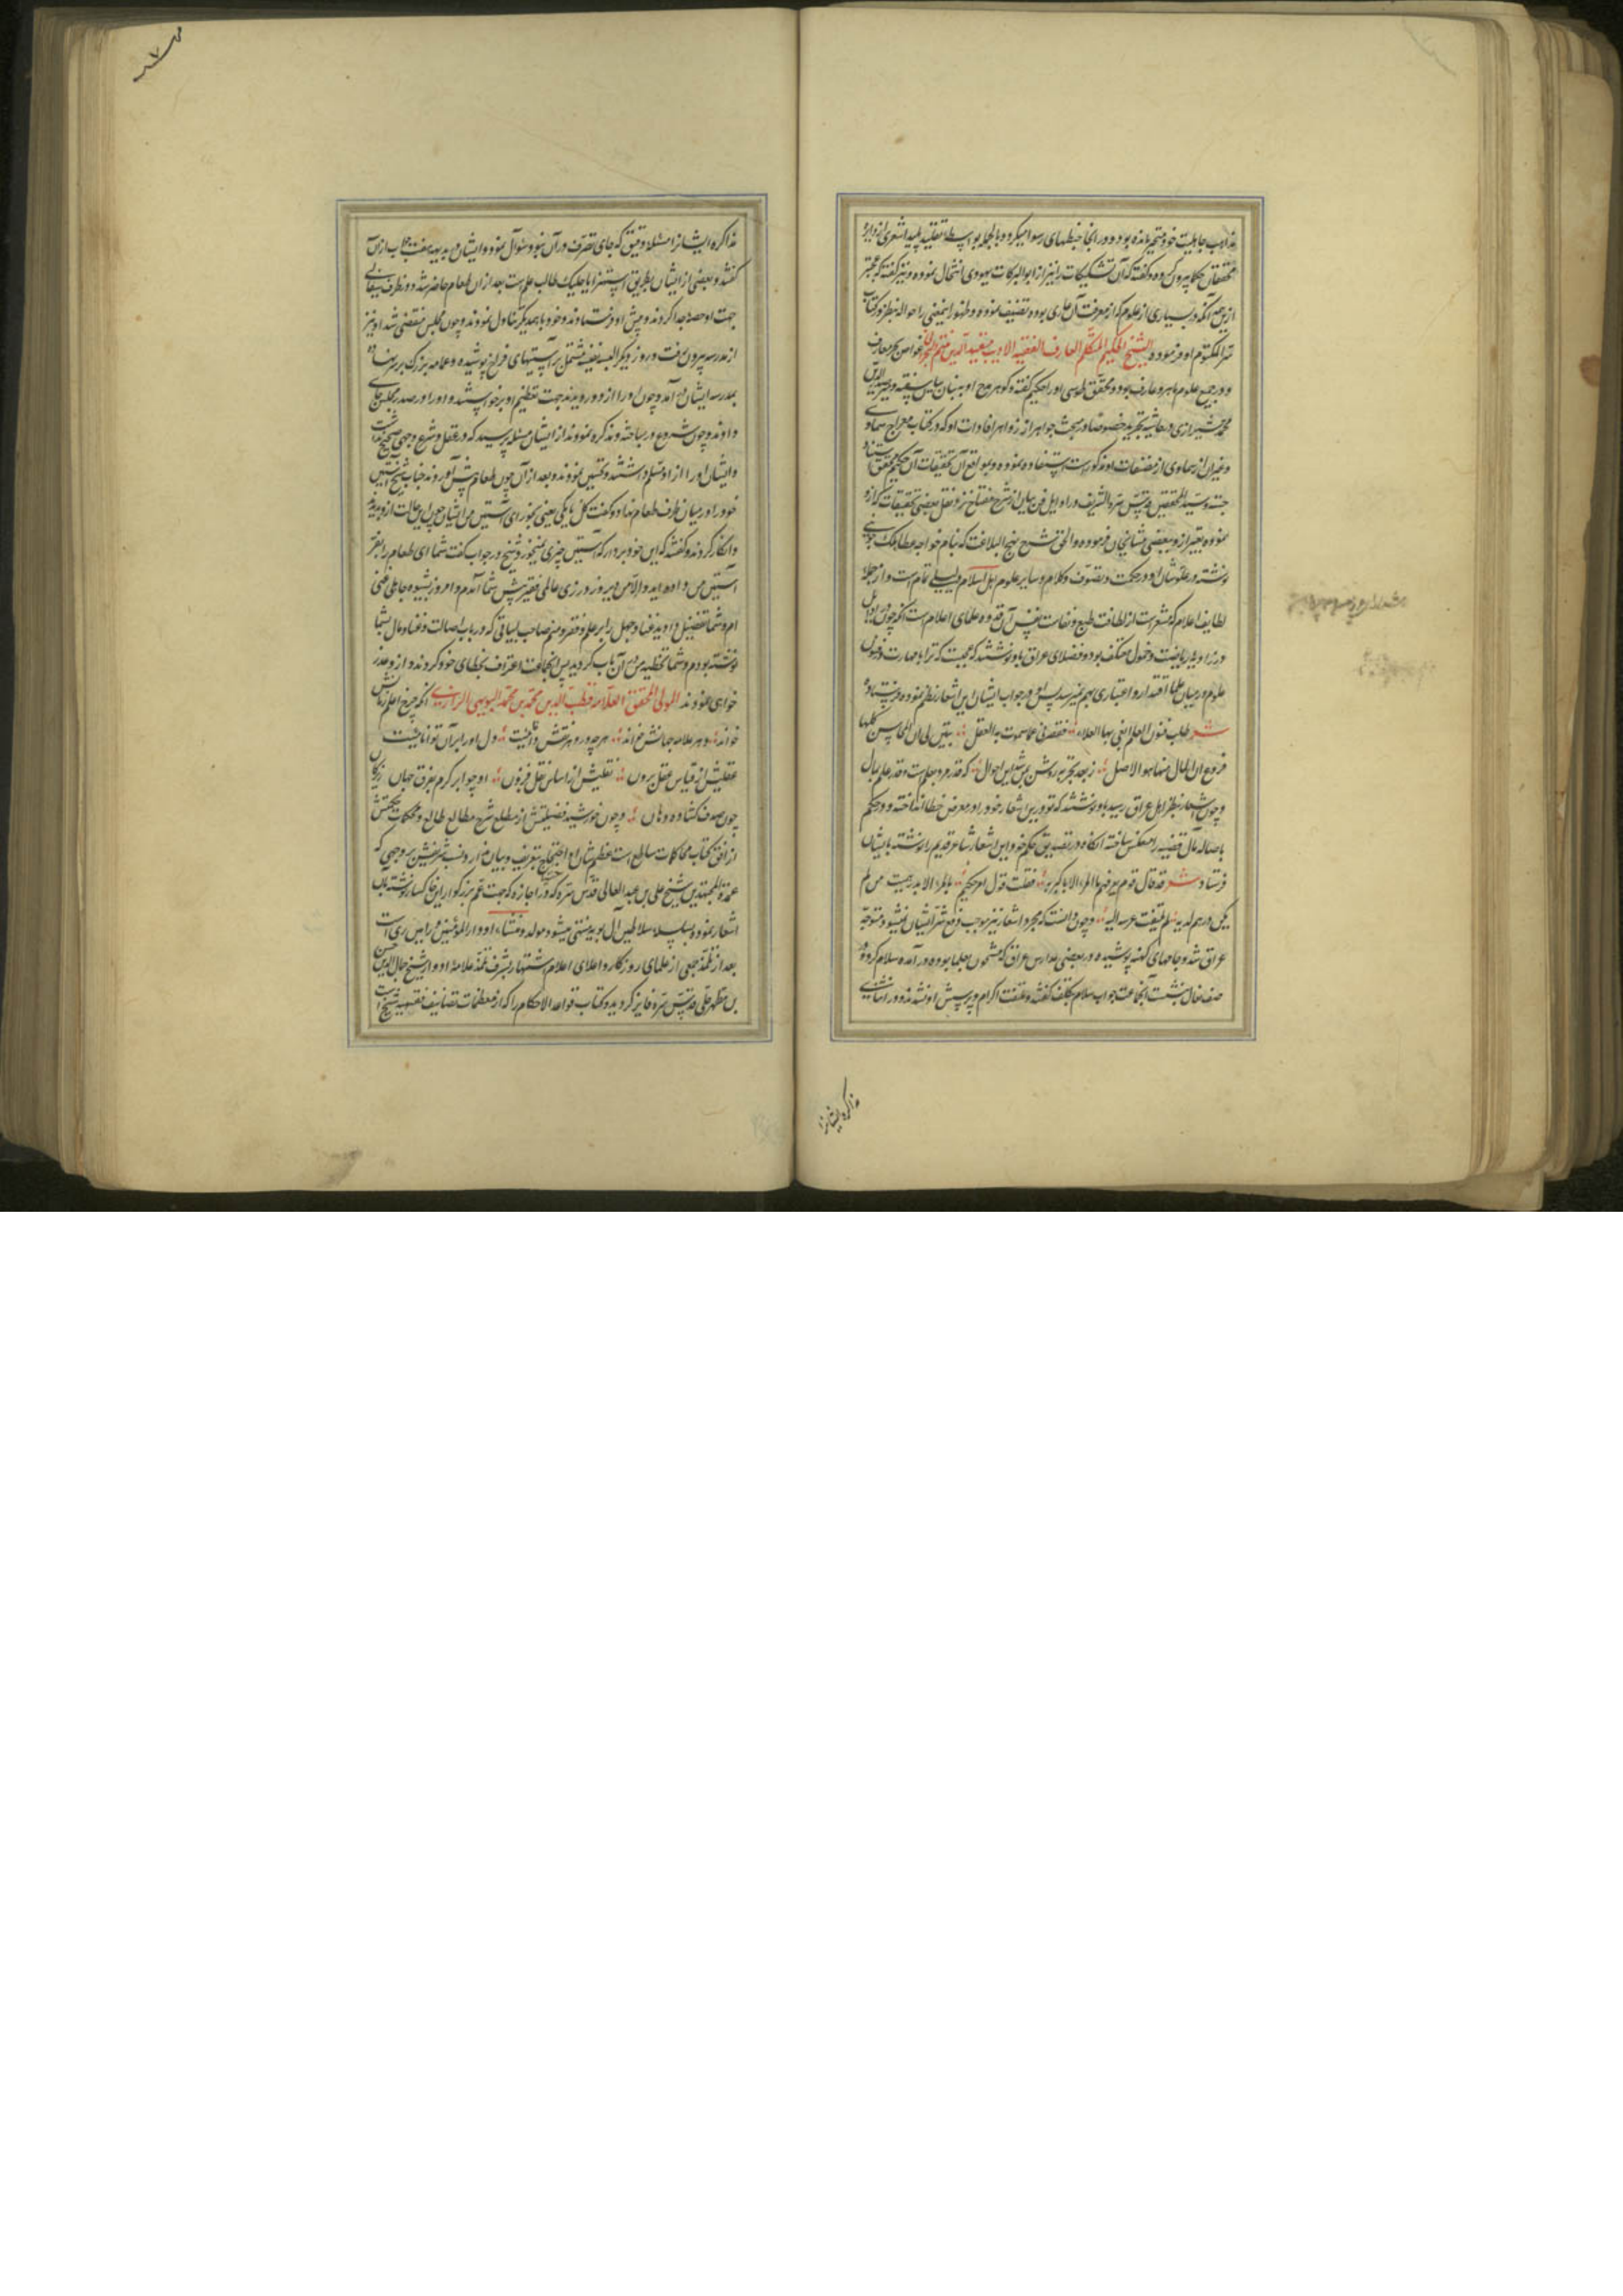 مذاهب جاهلیت خود متحیر مانده بود و در آنجا خبطهای رسوا میکرد و بالجمله بواسطه تقلید پلید اشعری از دایره
محققان حکما بیرون کرده و گفته که آن تشکیکات را نیز از ابو البرکات یهودی انتحال نموده و نیز گفته که
از بس آنکه در بسیاری از علوم که از معرفت آن عاری بوده تصنیف نموده و ظهور اینمعنی را حواله بنظر در کتاب
سر المکتوم او فرموده الشیخ الحکیم المتکلم العارف الفقیه الادیب غواص بحر معارف
و در جمیع علوم ماهر و عارف بود و محقق طوسی او را حکیم گفته و گوهر مدح او به بنان بیان سفته و میر صدر الدین
محمد شیرازی در حاشیه تجرید خصوصا در مبحث جواهر از زواهر افادات او که در کتاب معراج سماوی
و غیر آن از سماوی از مصنفات او مذکور است استفاده نموده و بمواقع آن تحقیقات آن حکیم محقق استناد
جسته و سید المحققین قدس سره الشریف در اوایل فن بیان از شرح مفتاح نیز نقل بعضی تحقیقات که از او
نموده تعبیر از او ببعضی مشایخنا فرموده و الحق شرح نهج البلاغت که بنام خواجه عطا ملک جوینی
نوشته در علو شان او در حکمت و تصوف و کلام و سایر علوم اهل اسلام دلیلی تمام است و از جمله
لطایف اعلام که مشعر است از لطافت طبع و نفاست نفس آن قدوه علمای اعلام است آنکه چون در اوایل
در زاویه ریاضت و خمول معتکف بود و فضلای عراق باو نوشتند که عجبست که ترا با مهارت در فنون
علوم در میان علما اقتدار و اعتباری بهم نمیرسد پس او در جواب ایشان این اشعار نظم نموده فرستاده
شعر طلبت فنون العلم ابغی بها العلاء فقصر بی عما سموت به العقل تبین لی ان المحاسن کلها
فروع ان المال منها هو الاصل ز بعد تجربه روشن بمن شد این احوال که قدر مرد بعلمست و قدر علم بمال
و چون اشعار بنظر اهل عراق رسید باو نوشتند که تو درین اشعار خود را در معرض خطا انداخته و در حکم
باصالة مال قضیه را معکس ساخته آنگاه در تصدیق حکم خود این اشعار شاعر قدیم را نوشته بایشان
فرستاد شعر قد قال قوم بغیر فهم ما المرء الا باکبریه فقلت قول امرء حکیم ما المرء الا بدرهمیه من لم
یکن درهم لدیه لم تلتفت عرسه الیه و چون دانست که مجرد اشعار نیز موجب رفع شر ایشان نمیشود متوجه
عراق شد و جامهای کهنه پوشیده در بعضی مدارس عراق که مشحون بعلما بوده در آمده سلام کرد و در
صف نعال بنشست آنجماعت جواب سلام بتکلف گفتند و ملتفت اکرام و پرسش او نشدند و در اثنای
مذاکره ایشانرا
مذاکره ایشانرا مسئله دقیق که جای تصرف در آن بود سئوال نمود و ایشان بدیهه هفت جواب ازین
گفتند و بعضی از ایشان بطریق استهزا با جلیک طالب علمست بعد از آن طعام حاضر شد و در ظرف سفالی
جهت او حصه جدا کردند و پیش او فرستادند و خود با همدیگر تناول نمودند و چون مجلس منقضی شد او نیز
از مدرسه بیرون رفت و روز دیگر البسه نفیسه مشتمل بر آستینهای فراخ پوشیده و عمامه بزرگ بر سر نهاده
بمدرسه ایشان در آمد و چون او را از دور دیدند جهت تعظیم او برخواستند و او را در صدر مجلس جای
دادند و چون شروع در مباحثه و مذاکره نمودند از ایشان مسئله پرسید که در عقل و شرع وجهی صحیح نداشت
و ایشان او را از او مسلم داشتند و تحسین نمودند و بعد از آن چون طعام پیش آوردند جناب شیخ آستین
خود را در میان ظرف طعام نهاد و گفت کل یا کمی یعنی بخور ای آستین من ایشان چون این حالت از او بدیدند
و انکار کردند و گفتند که این خود بردار که آستین چیزی نمیخورد شیخ در جواب گفت شما ای طعام را بقدر
آستین من داده اید و الا من دیروز در زی عالمی فقیر پیش شما آمدم و امروز بشیوه جاهلی غنی
ام و شما تفضیل دادید غنا و جهل را بر علم و فقر و منم صاحب ابیاتی که در باب اصالت و غنا و مال بشما
نوشته بودم و شما تخطیه من در آن باب کردید پس آنجماعت اعتراف بخطای خود کردند و از او عذر
خواهی نمودند المولی المحقق العلامه قطب الدین محمد بن محمد البویهی الرازی آنکه چرخ اعلم زمانش
خواند و هر علامه جهانش خواند هر چه در وهم نقش دانش بست دل او را بر آن توانا نیست
عقلش از قیاس عقل برون نقلش از اساس نقل فزون او چو ابر کرم بفرق جهان
چون صدف گشاده دهان و چون خورشید فضیلتش از مطلع شرح مطالع طالع و محکمات حکمتش
از افق کتاب محاکمات ساطع است عظم شان او احتیاج بتعریف و بیان ندارد و نسب شریفش بر وجهی که
عمدة المجتهدین شیخ علی بن عبد العالی قدس سره که در اجازه که جهت عم بزرگوار این خاکسار نوشته بآن
اشعار نموده بسلسله سلاطین آل بویه منتهی میشود و مولد و منشاء او دار المؤمنین ورامین ری است
بعد از تلمذ جمعی از علمای روزگار و اعلای اعلام اشتهار بشرف تلمذ علامه او و از شیخ جمال الدین حسن
بن مطهر حلی قدس سره فایز گردید و کتاب قواعد الاحکام را که از معظمات تصانیف فقهیه شیخ است